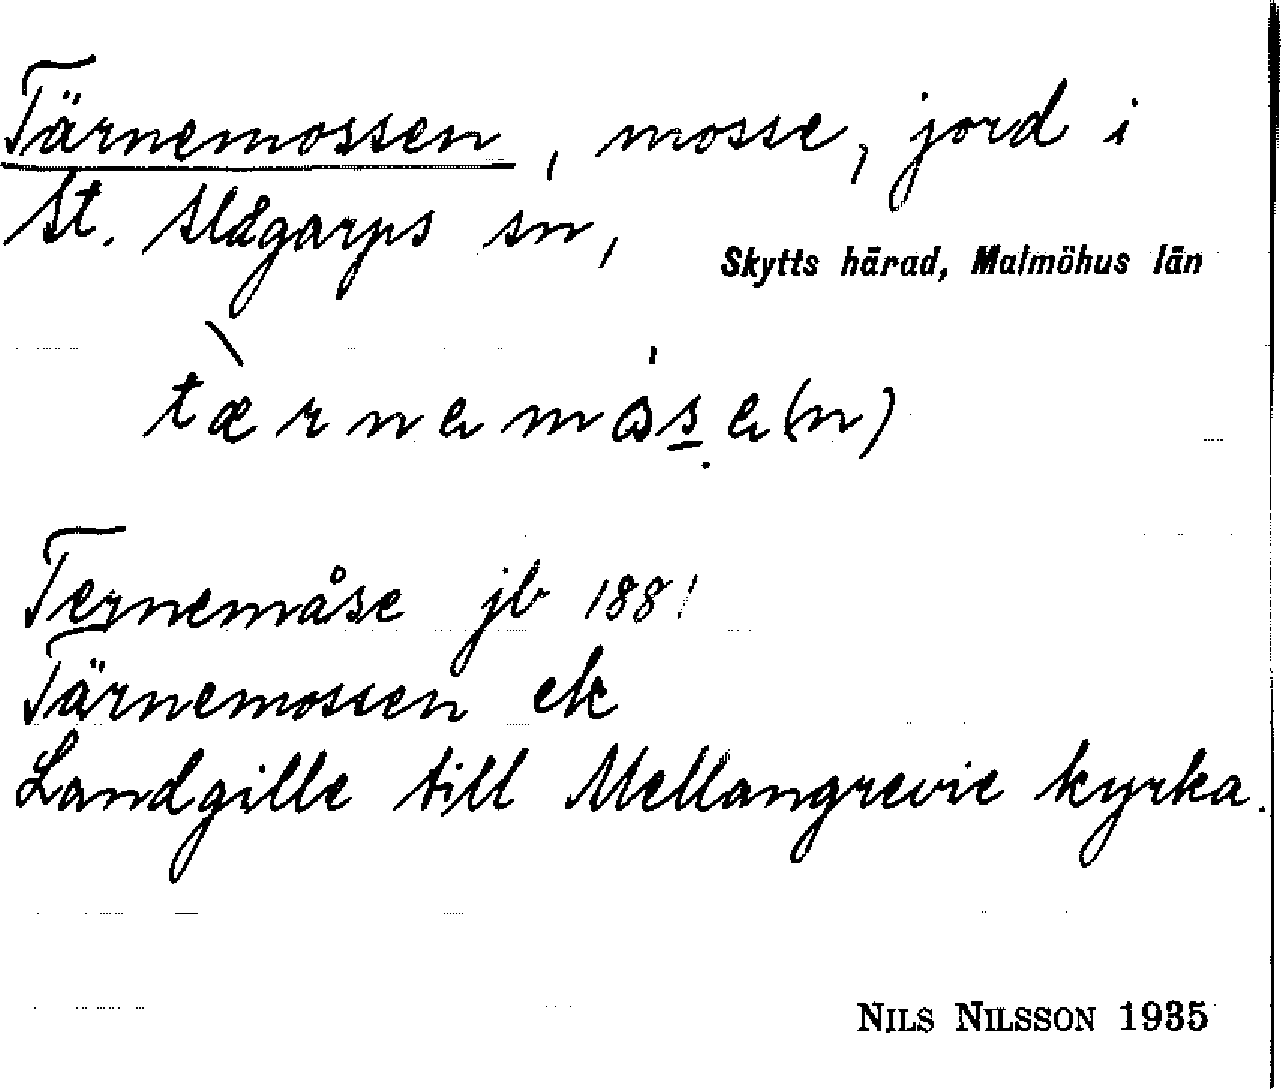 Tärnemossen, mosse, jord i
St. Slågarps sn,
Skytts härad, Malmöhus län
tærnemåse(n)
Ternemåse jb 1881
Tärnemossen ek
Landgille till Mellangrevie kyrka.
NILS NILSSON 1935